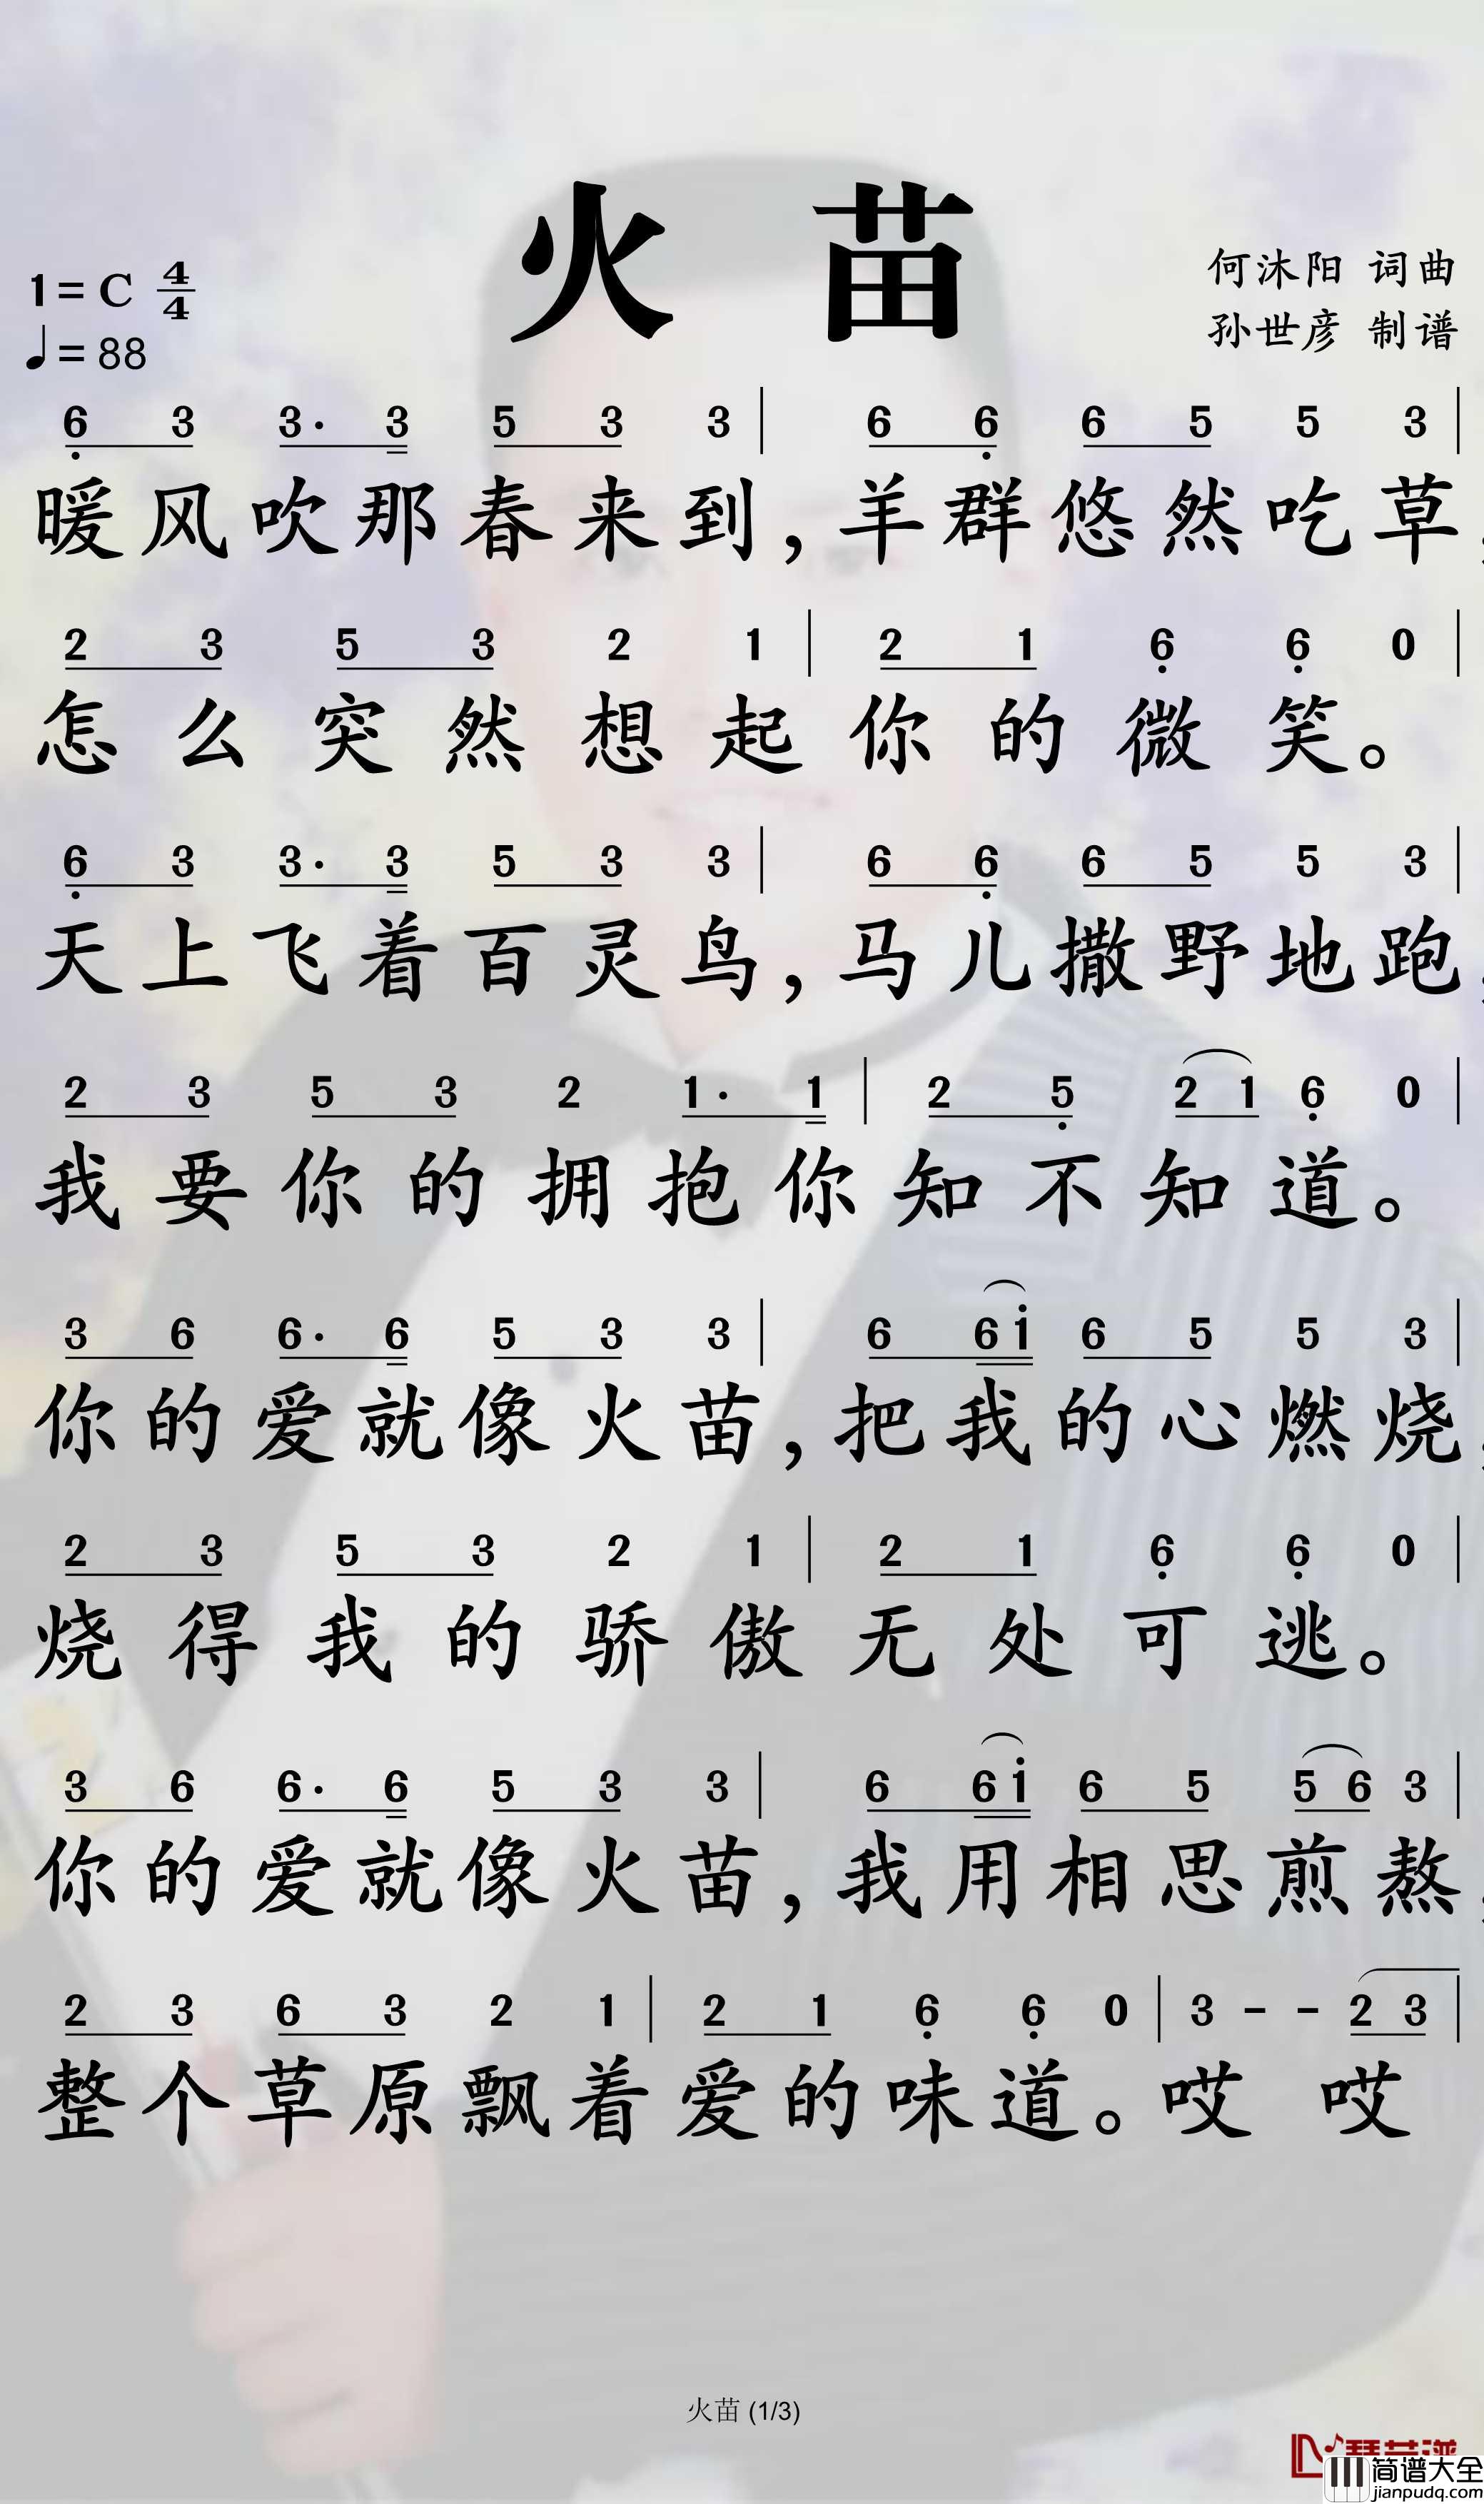 火 苗
1=C 4/4
♩=88
何沐阳 词曲
孙世彦 制谱
6̣ 3 3· 3 5 3 3 | 6 6̣ 6 5 5 3 |
暖风吹那春来到，羊群悠然吃草，
2 3 5 3 2 1 | 2 1 6̣ 6̣ 0 |
怎么突然想起你的微笑。
6̣ 3 3· 3 5 3 3 | 6 6̣ 6 5 5 3 |
天上飞着百灵鸟，马儿撒野地跑，
2 3 5 3 2 1· 1 | 2 5̣ 2 1 6̣ 0 |
我要你的拥抱你知不知道。
3 6 6· 6 5 3 3 | 6 6 1̇ 6 5 5 3 |
你的爱就像火苗，把我的心燃烧，
2 3 5 3 2 1 | 2 1 6̣ 6̣ 0 |
烧得我的骄傲无处可逃。
3 6 6· 6 5 3 3 | 6 6 1̇ 6 5 5 6 3 |
你的爱就像火苗，我用相思煎熬，
2 3 6 3 2 1 | 2 1 6̣ 6̣ 0 | 3 - - 2 3 |
整个草原飘着爱的味道。哎 哎
火苗 (1/3)
简谱大全
jianpudq.com